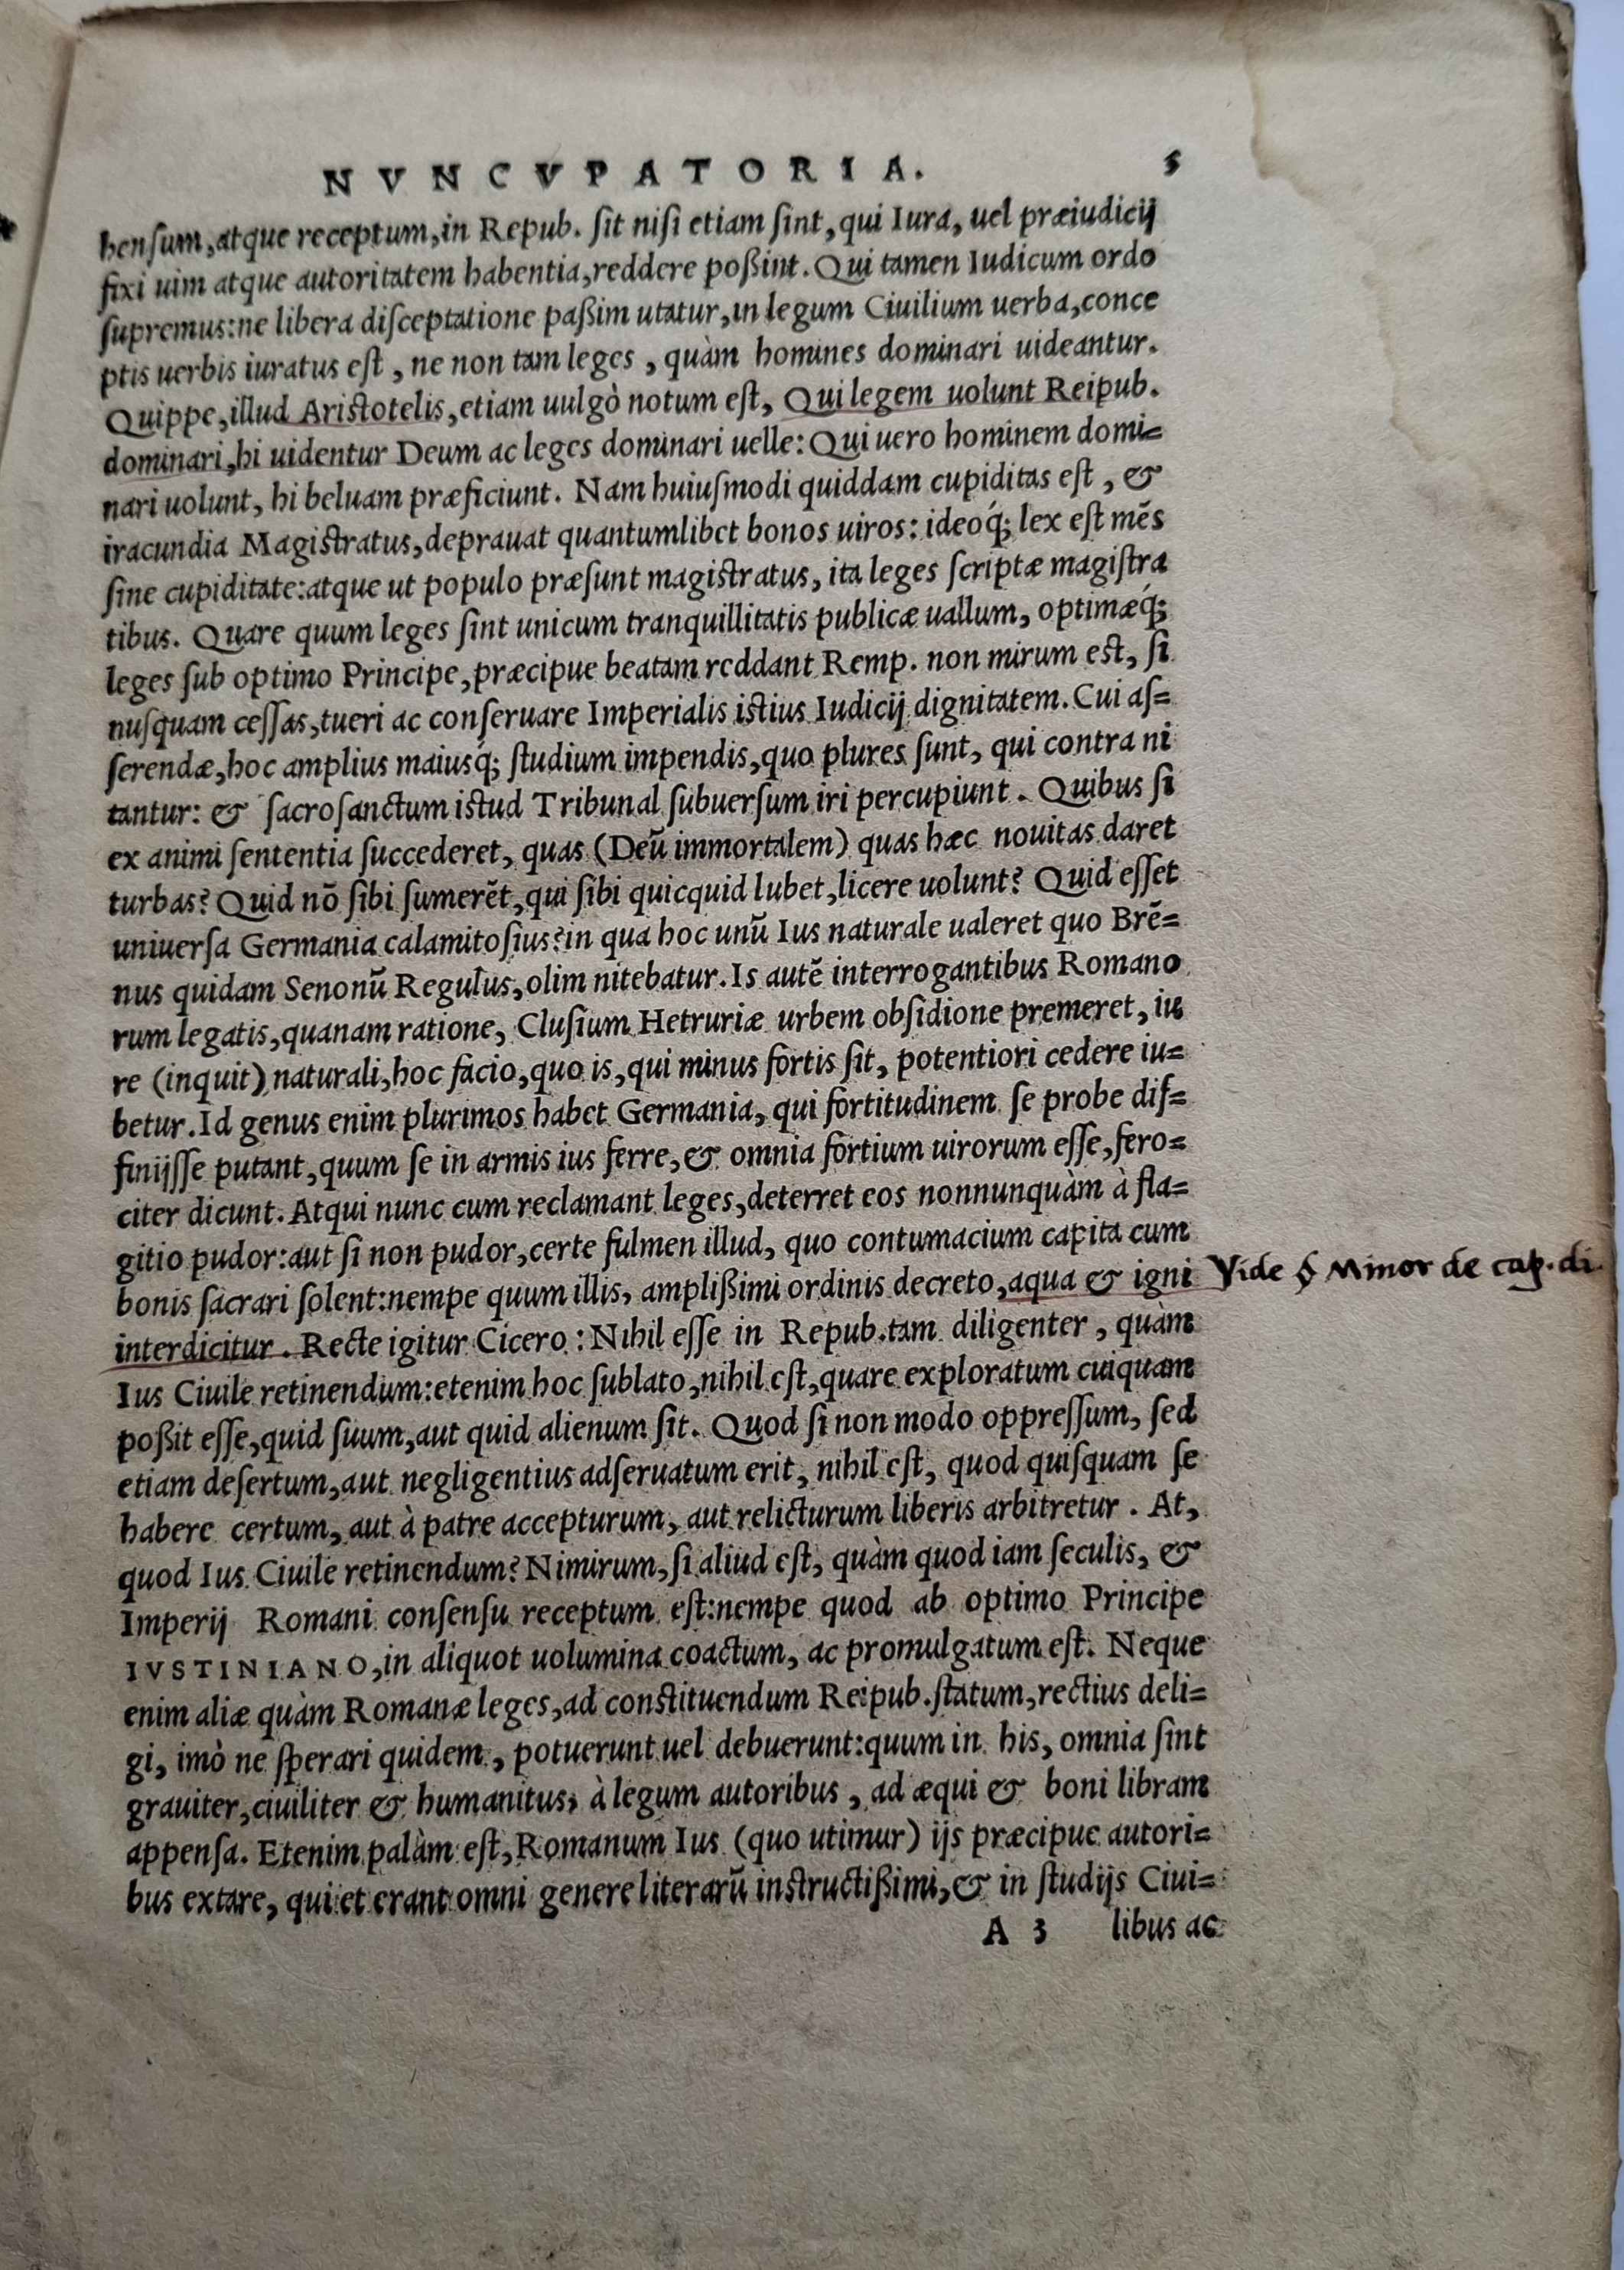 NVNCVPATORIA. 5
hensum, atque receptum, in Repub. sit nisi etiam sint, qui Iura, uel præiudicij
fixi uim atque autoritatem habentia, reddere poßint. Qui tamen Iudicum ordo
supremus: ne libera disceptatione paßim utatur, in legum Ciuilium uerba, conce
ptis uerbis iuratus est, ne non tam leges, quàm homines dominari uideantur.
Quippe, illud Aristotelis, etiam uulgò notum est, Qui legem uolunt Reipub.
dominari, hi uidentur Deum ac leges dominari uelle: Qui uero hominem domi=
nari uolunt, hi beluam præficiunt. Nam huiusmodi quiddam cupiditas est, &
iracundia Magistratus, deprauat quantumlibet bonos uiros: ideoq́; lex est mẽs
sine cupiditate: atque ut populo præsunt magistratus, ita leges scriptæ magistra
tibus. Quare quum leges sint unicum tranquillitatis publicæ uallum, optimæq́;
leges sub optimo Principe, præcipue beatam reddant Remp. non mirum est, si
nusquam cessas, tueri ac conseruare Imperialis istius Iudicij dignitatem. Cui as=
serendæ, hoc amplius maiusq́; studium impendis, quo plures sunt, qui contra ni
tantur: & sacrosanctum istud Tribunal subuersum iri percupiunt. Quibus si
ex animi sententia succederet, quas (Deũ immortalem) quas hæc nouitas daret
turbas? Quid nõ sibi sumerẽt, qui sibi quicquid lubet, licere uolunt? Quid esset
uniuersa Germania calamitosius? in qua hoc unũ Ius naturale ualeret quo Brẽ=
nus quidam Senonũ Regulus, olim nitebatur. Is autẽ interrogantibus Romano
rum legatis, quanam ratione, Clusium Hetruriæ urbem obsidione premeret, iu
re (inquit) naturali, hoc facio, quo is, qui minus fortis sit, potentiori cedere iu=
betur. Id genus enim plurimos habet Germania, qui fortitudinem se probe dif=
finijsse putant, quum se in armis ius ferre, & omnia fortium uirorum esse, fero=
citer dicunt. Atqui nunc cum reclamant leges, deterret eos nonnunquàm à fla=
gitio pudor: aut si non pudor, certe fulmen illud, quo contumacium capita cum
bonis sacrari solent: nempe quum illis, amplißimi ordinis decreto, aqua & igni
Vide § Minor de cap. di.
interdicitur. Recte igitur Cicero: Nihil esse in Repub. tam diligenter, quàm
Ius Ciuile retinendum: etenim hoc sublato, nihil est, quare exploratum cuiquam
poßit esse, quid suum, aut quid alienum sit. Quod si non modo oppressum, sed
etiam desertum, aut negligentius adseruatum erit, nihil est, quod quisquam se
habere certum, aut à patre accepturum, aut relicturum liberis arbitretur. At,
quod Ius Ciuile retinendum? Nimirum, si aliud est, quàm quod iam seculis, &
Imperij Romani consensu receptum est: nempe quod ab optimo Principe
IVSTINIANO, in aliquot uolumina coactum, ac promulgatum est. Neque
enim aliæ quàm Romanæ leges, ad constituendum Reipub. statum, rectius deli=
gi, imò ne sperari quidem, potuerunt uel debuerunt: quum in his, omnia sint
grauiter, ciuiliter & humanitus, à legum autoribus, ad æqui & boni libram
appensa. Etenim palàm est, Romanum Ius (quo utimur) ijs præcipue autori=
bus extare, qui et erant omni genere literarũ instructißimi, & in studijs Ciui=
A 3 libus ac